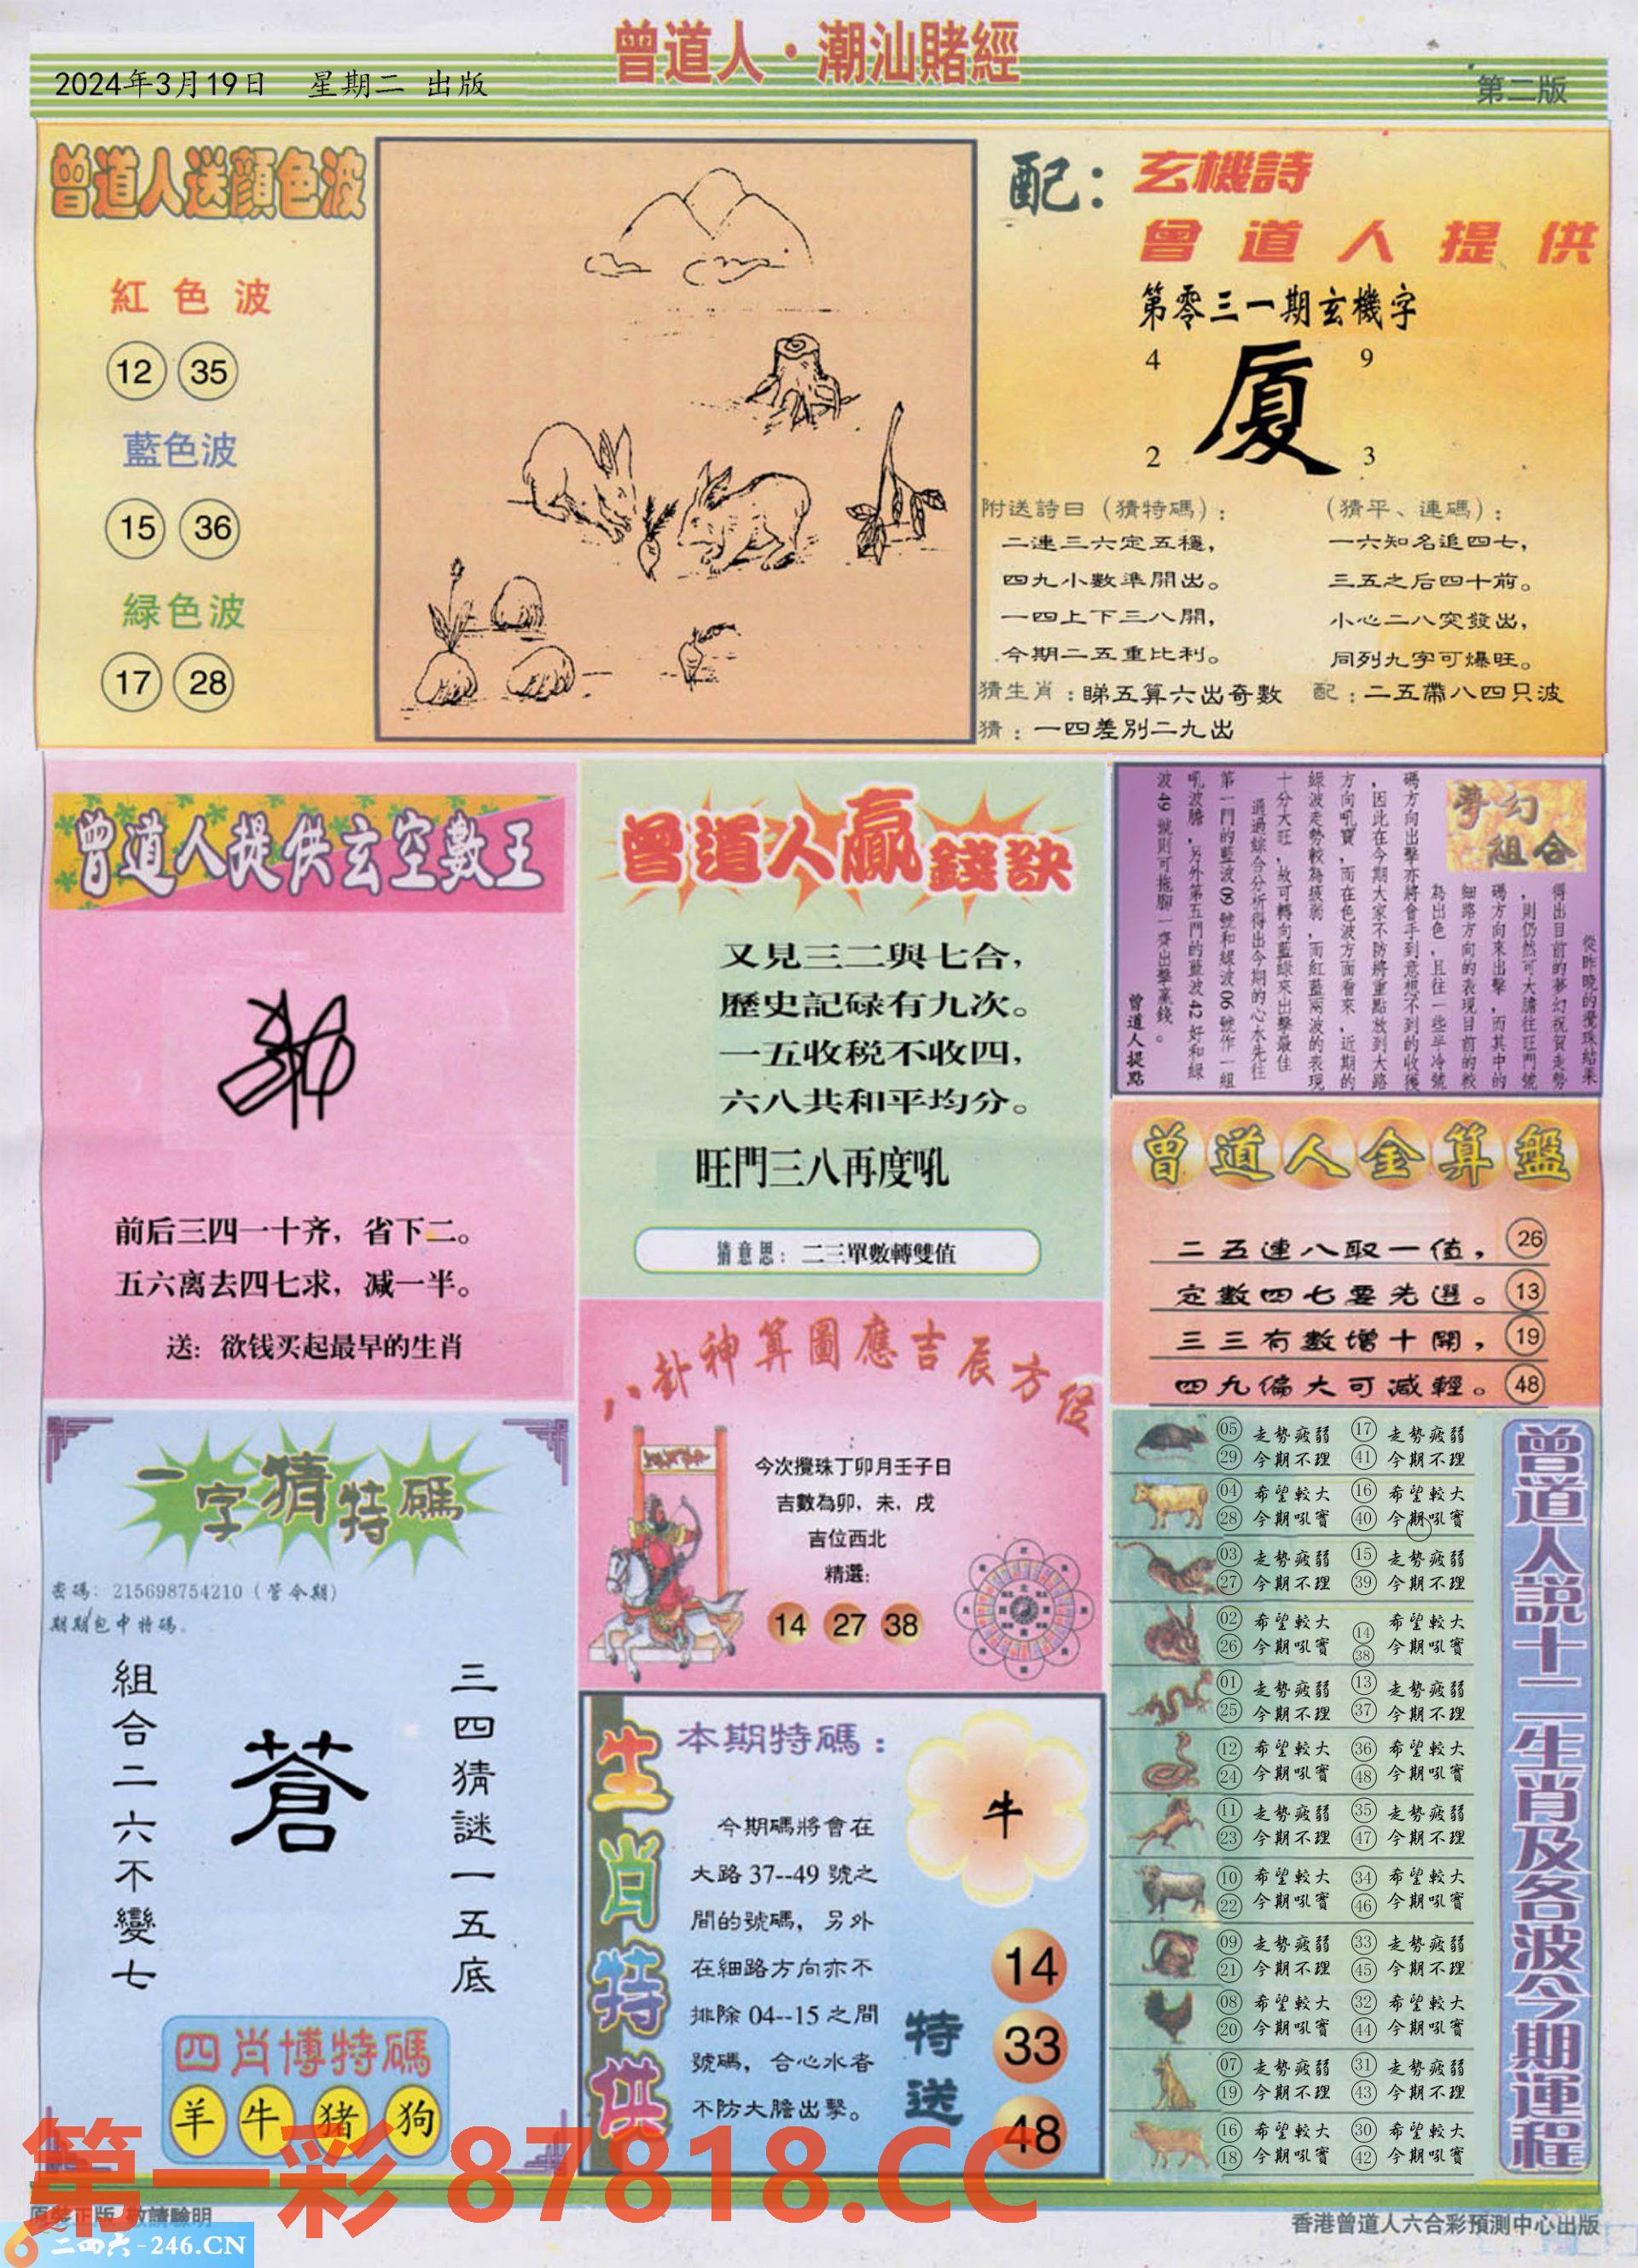 曾道人·潮汕賭經
2024年3月19日 星期二 出版
第二版
曾道人送顏色波
紅色波
12 35
藍色波
15 36
緑色波
17 28
配：玄機詩
曾道人提供
第零三一期玄機字
4 9
厦
2 3
附送詩日（猜特碼）：
二連三六定五穩，
四九小數準開出。
一四上下三八開，
今期二五重比利。
（猜平、連碼）：
一六知名追四七，
三五之后四十前。
小心二八突發出，
同列九字可爆旺。
猜生肖：睇五算六出奇數
配：二五帶八四只波
猜：一四差別二九出
曾道人提供玄空數王
前后三四一十齐，省下二。
五六离去四七求，减一半。
送：欲钱买起最早的生肖
曾道人贏錢訣
又見三二與七合，
歷史記碌有九次。
一五收税不收四，
六八共和平均分。
旺門三八再度吼
猜意思：二三單數轉雙值
夢幻
組合
從昨晚的攪珠結果
得出目前的夢幻祝賀走勢
，則仍然可大膽往旺門號
碼方向來出擊，而其中的
細路方向的表現目前的較
為出色，且往一些半冷號
碼方向出擊亦將會手到意想不到的收獲
，因此在今期大家不防將重點放到大路
方向吼寶，而在色波方面看來，近期的
緑波走勢較為疲弱，而紅藍兩波的表現
十分大旺，故可轉向藍緑來出擊最佳
通過綜合分析得出今期的心水先往
第一門的藍波09號和緑波06號作一組
吼波膽，另外第五門的藍波42好和緑
波49號則可拖腳一齊出擊贏錢。
曾道人提點
曾道人金算盤
二五連八取一值， 26
定數四七要先選。 13
三三有數增十開， 19
四九偏大可减輕。 48
八卦神算圖應吉辰方位
今次攪珠丁卯月壬子日
吉數為卯，未，戌
吉位西北
精選：
14 27 38
一字猜特碼
密碼：215698754210（管令期）
期期包中特碼。
三四猜謎一五底
蒼
組合二六不變七
四肖博特碼
羊 牛 猪 狗
生肖特供
本期特碼：
牛
今期碼將會在
大路37--49號之
間的號碼，另外
在細路方向亦不
排除04--15之間
號碼，合心水者
不防大膽出擊。
特送
14
33
48
05 走勢疲弱 17 走勢疲弱
29 今期不理 41 今期不理
04 希望較大 16 希望較大
28 今期吼寶 40 今期吼寶
03 走勢疲弱 15 走勢疲弱
27 今期不理 39 今期不理
02 希望較大 14 希望較大
26 今期吼寶 38 今期吼寶
01 走勢疲弱 13 走勢疲弱
25 今期不理 37 今期不理
12 希望較大 36 希望較大
24 今期吼寶 48 今期吼寶
11 走勢疲弱 35 走勢疲弱
23 今期不理 47 今期不理
10 希望較大 34 希望較大
22 今期吼寶 46 今期吼寶
09 走勢疲弱 33 走勢疲弱
21 今期不理 45 今期不理
08 希望較大 32 希望較大
20 今期吼寶 44 今期吼寶
07 走勢疲弱 31 走勢疲弱
19 今期不理 43 今期不理
16 希望較大 30 希望較大
18 今期吼寶 42 今期吼寶
曾道人說十二生肖及各波今期運程
第一彩 87818.CC
原裝正版 敬請驗明
二四六-246.CN
香港曾道人六合彩預測中心出版